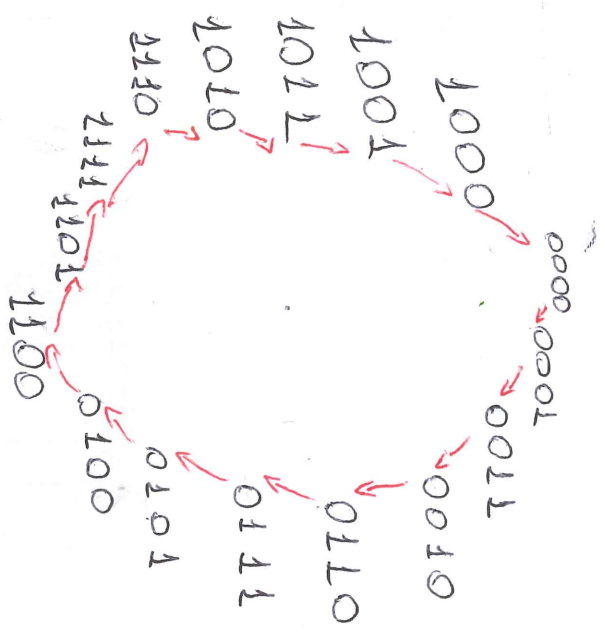 0000
0001
0011
0010
0110
0111
0101
0100
1100
1101
1111
1110
1010
1011
1001
1000